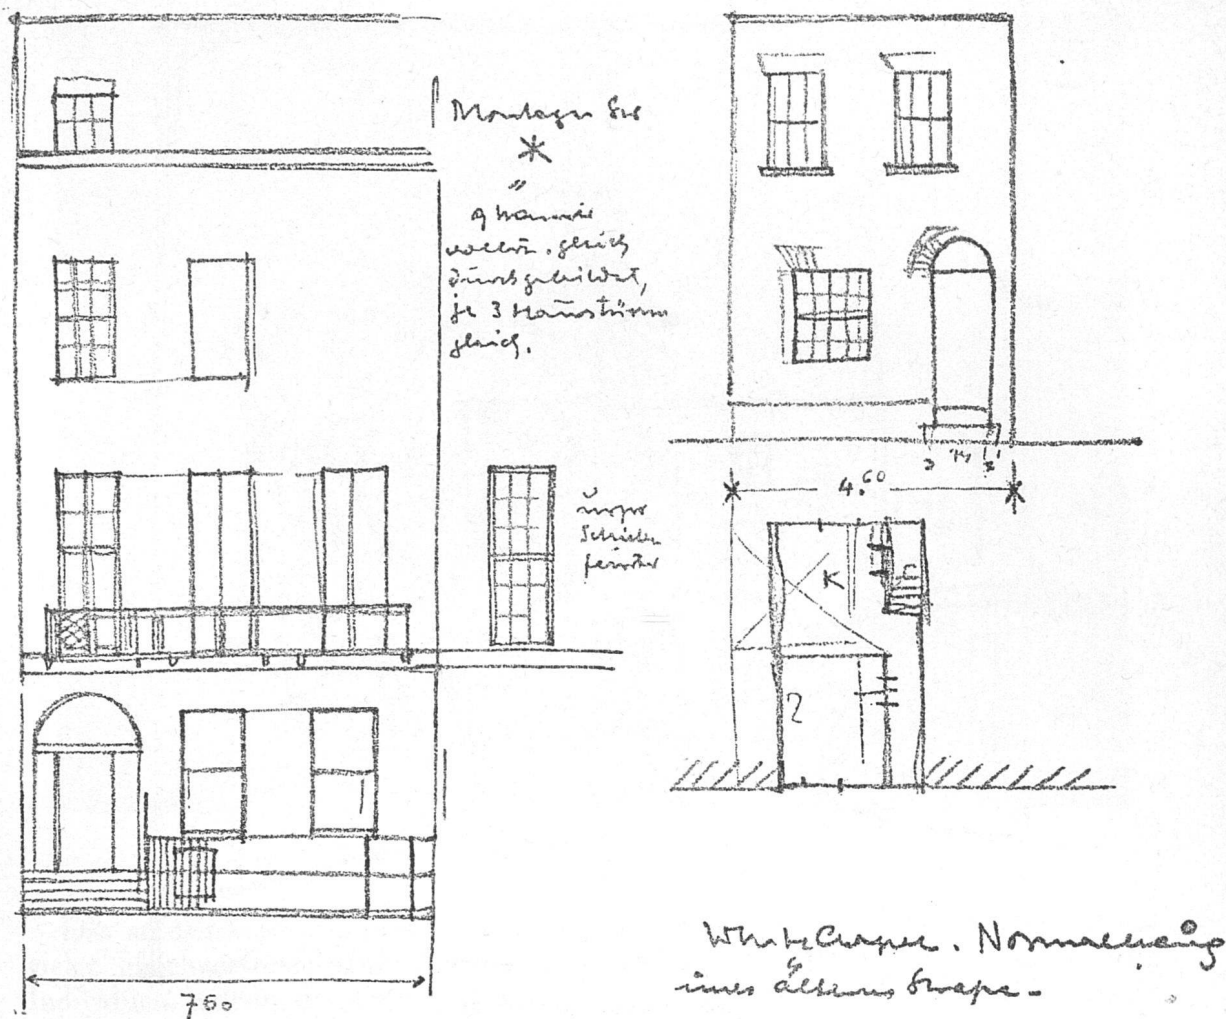 Montague
„
9
vollst. gleich
durchgebildet,
je 3 Haustüren
gleich.
Schiebe
fenster
760
3
4.60
K
Z
Whitechapel. Normalhaus
einer älteren Strasse.